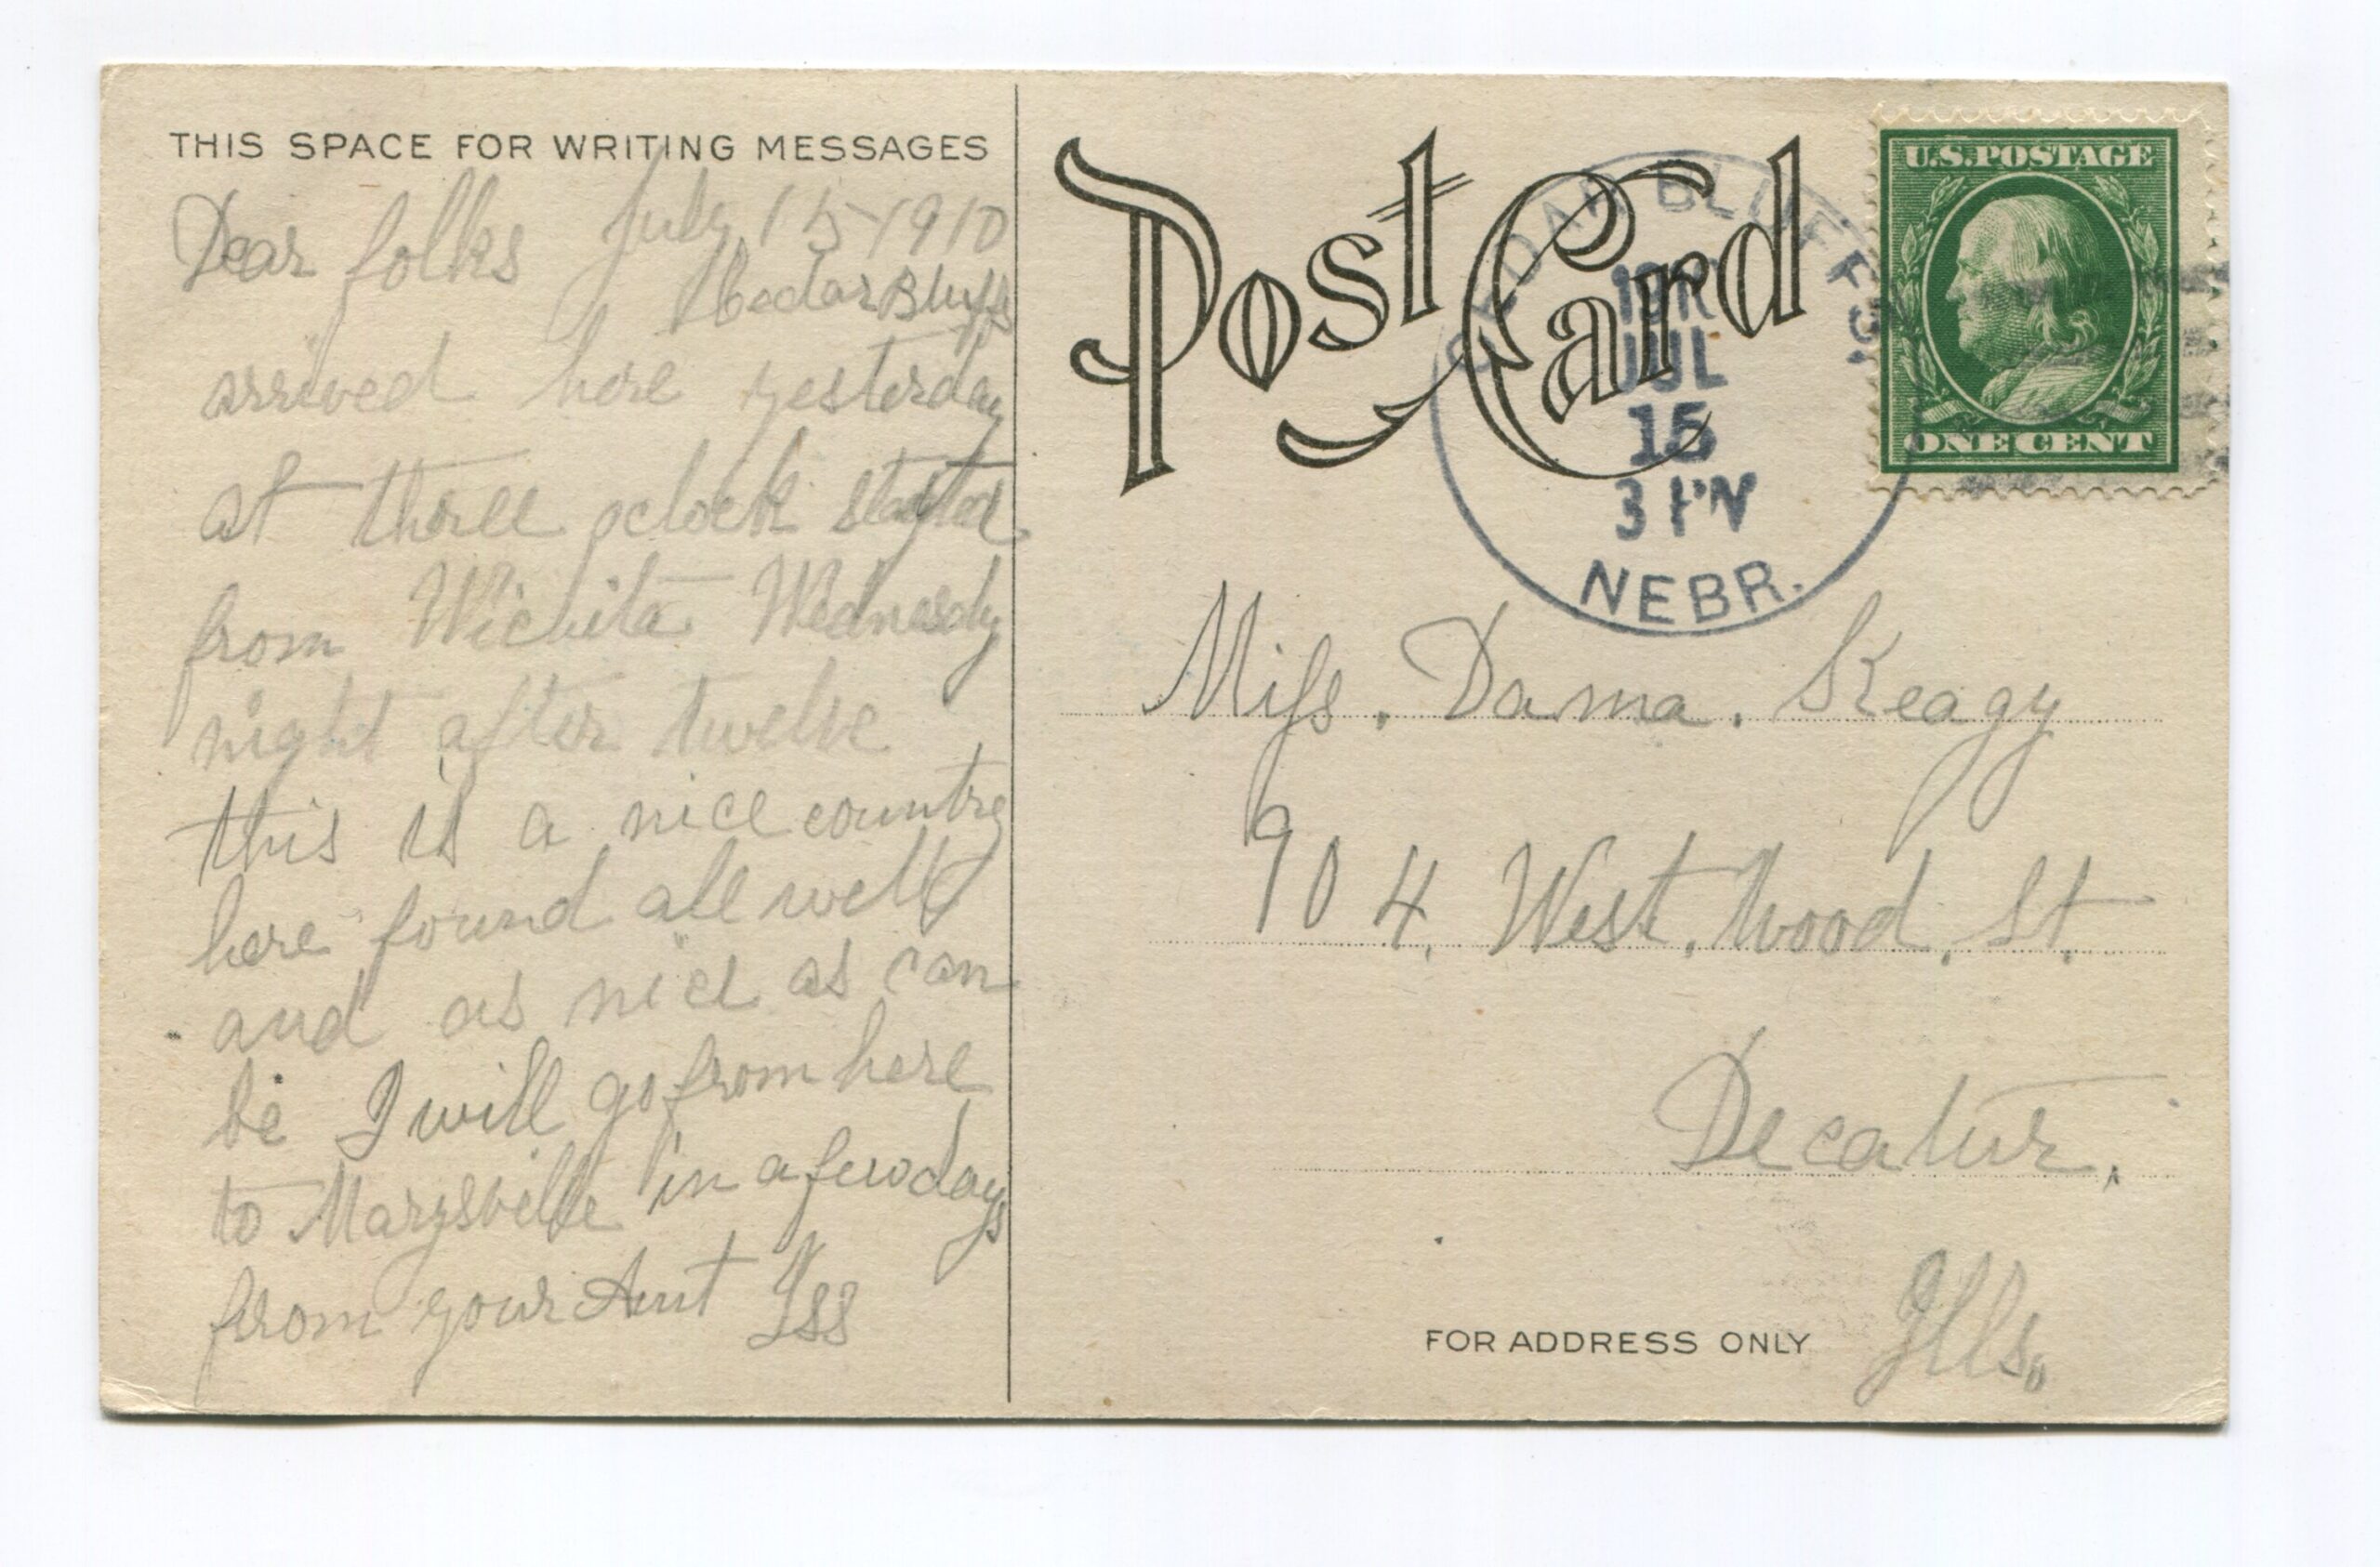 THIS SPACE FOR WRITING MESSAGES
July 15-1910
Dear folks
Cedar Bluffs
arrived here yesterday
at three oclock started
from Wichita Wednesdy
night after twelve
this is a nice countre
here found all well
and as nice as can
be I will go from here
to Marysville in a few days
from your Aunt Iss
Post Card
CEDAR BLUFFS
JUL
15
3 PM
NEBR.
U.S. POSTAGE
ONE CENT
Miss. Dama. Keagy
904. West. Wood. St.
Decatur,
Ills.
FOR ADDRESS ONLY